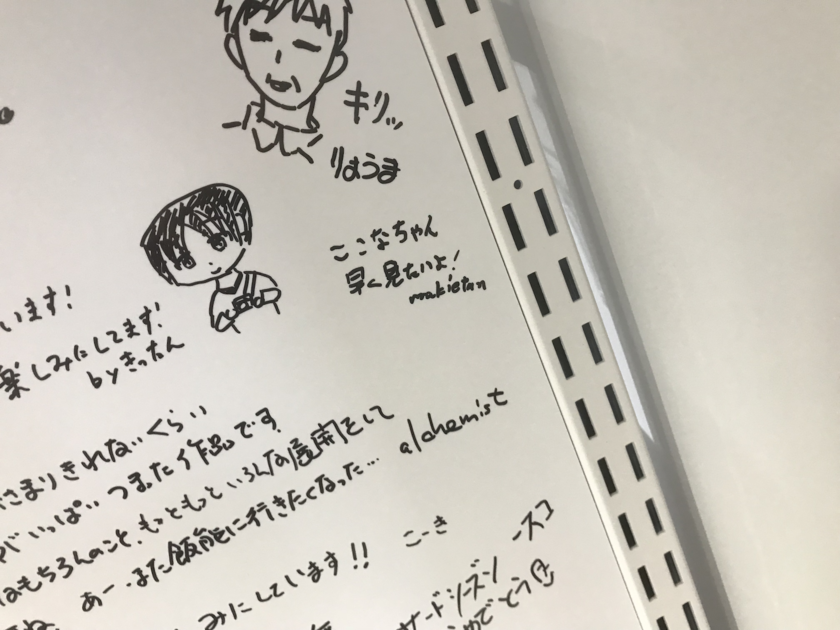 キリッ
りょうま
ここなちゃん
早く見たいよ!
makietan
います!
楽しみにしてます!
byきったん
さまりきれないくらい
がいっぱいつまった作品です
はもちろんのこと、もっともっといろんな展開をして
あー、また飯能に行きたくなった…
alchemist
みにしています!!
こーき
サードシーズン